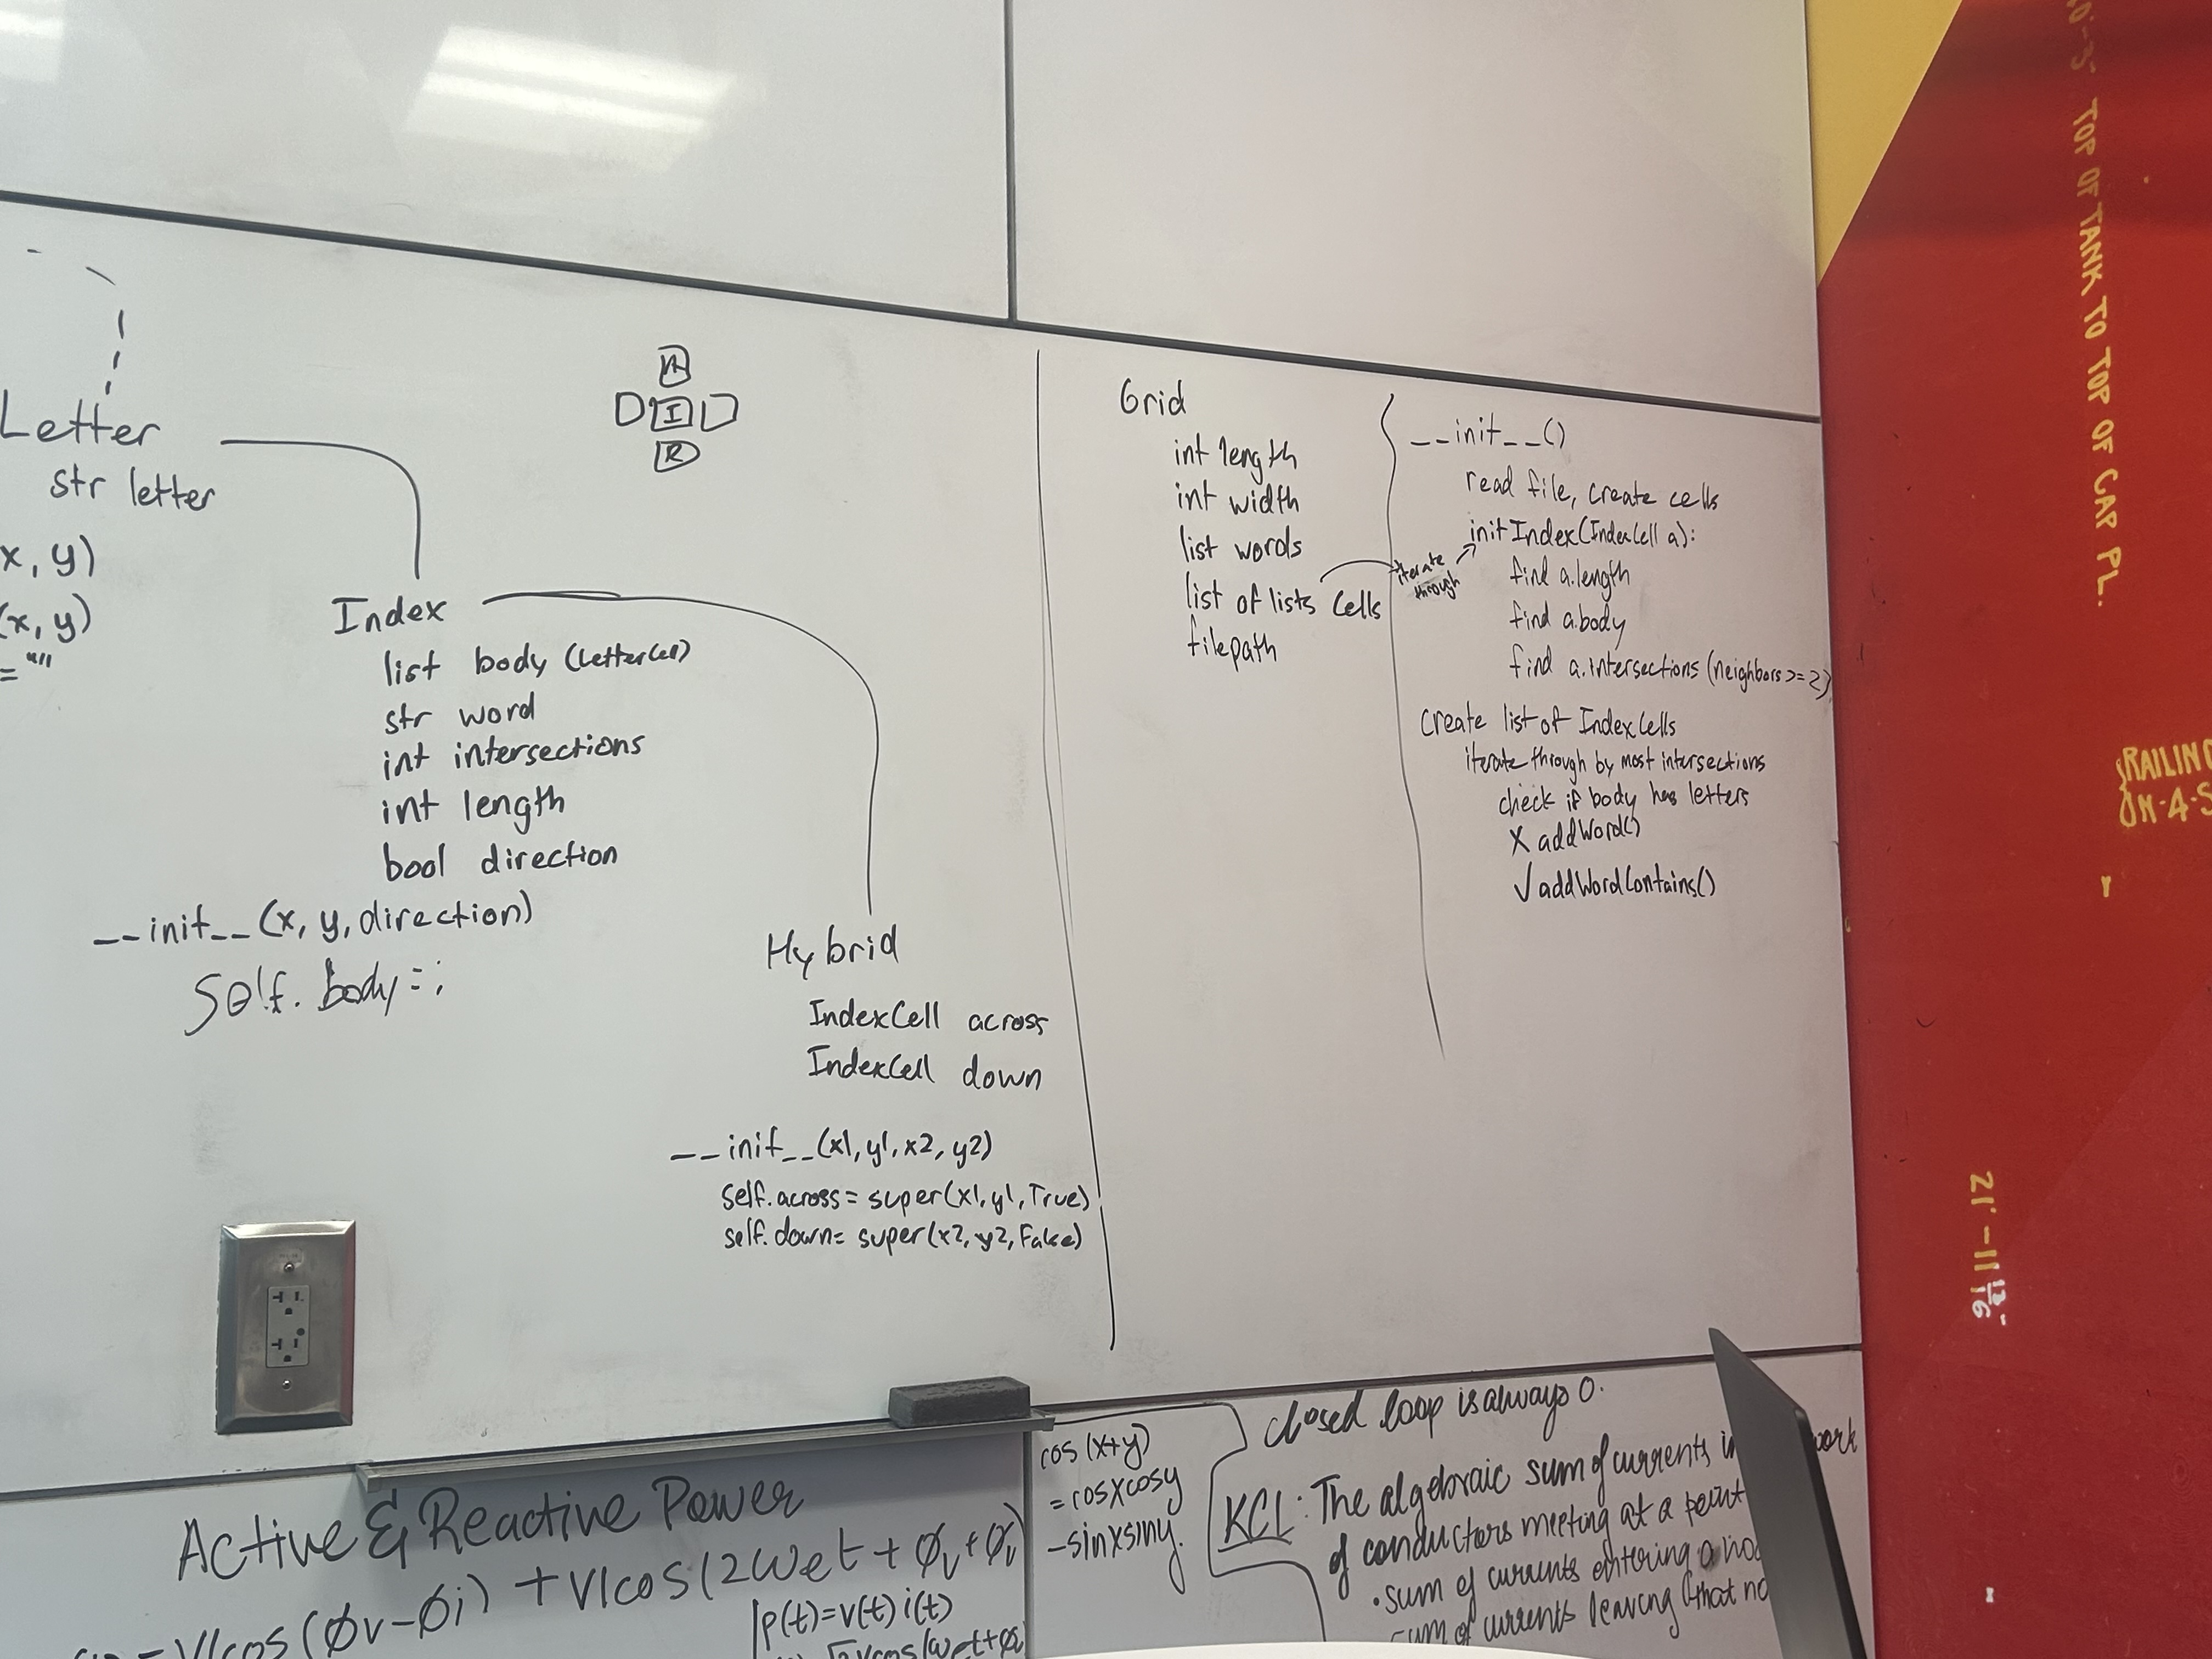 Letter
str letter
x, y)
(x, y)
= ""
A
I
R
Index
list body (LetterCell)
str word
int intersections
int length
bool direction
__init__(x, y, direction)
self. body = ;
Hybrid
IndexCell across
IndexCell down
__init__(x1, y1, x2, y2)
self.across = super(x1, y1, True)
self.down = super(x2, y2, False)
Grid
int length
int width
list words
list of lists cells
filepath
iterate
through
__init__()
read file, create cells
initIndex(IndexCell a):
find a.length
find a.body
find a.intersections (neighbors >= 2)
Create list of IndexCells
iterate through by most intersections
check if body has letters
X addWord()
√ addWordContains()
Active & Reactive Power
= VIcos(φv-φi) + VIcos(2wet + φv + φi)
p(t)=v(t) i(t)
cos (x+y)
= cosxcosy
-sinxsiny.
closed loop is always 0.
KCL: The algebraic sum of currents in work
of conductors meeting at a point
• sum of currents entering a no
sum of currents leaving that no
TOP OF TANK TO TOP OF CAP PL.
RAILING
ON-4-S
21'-11 13/16"